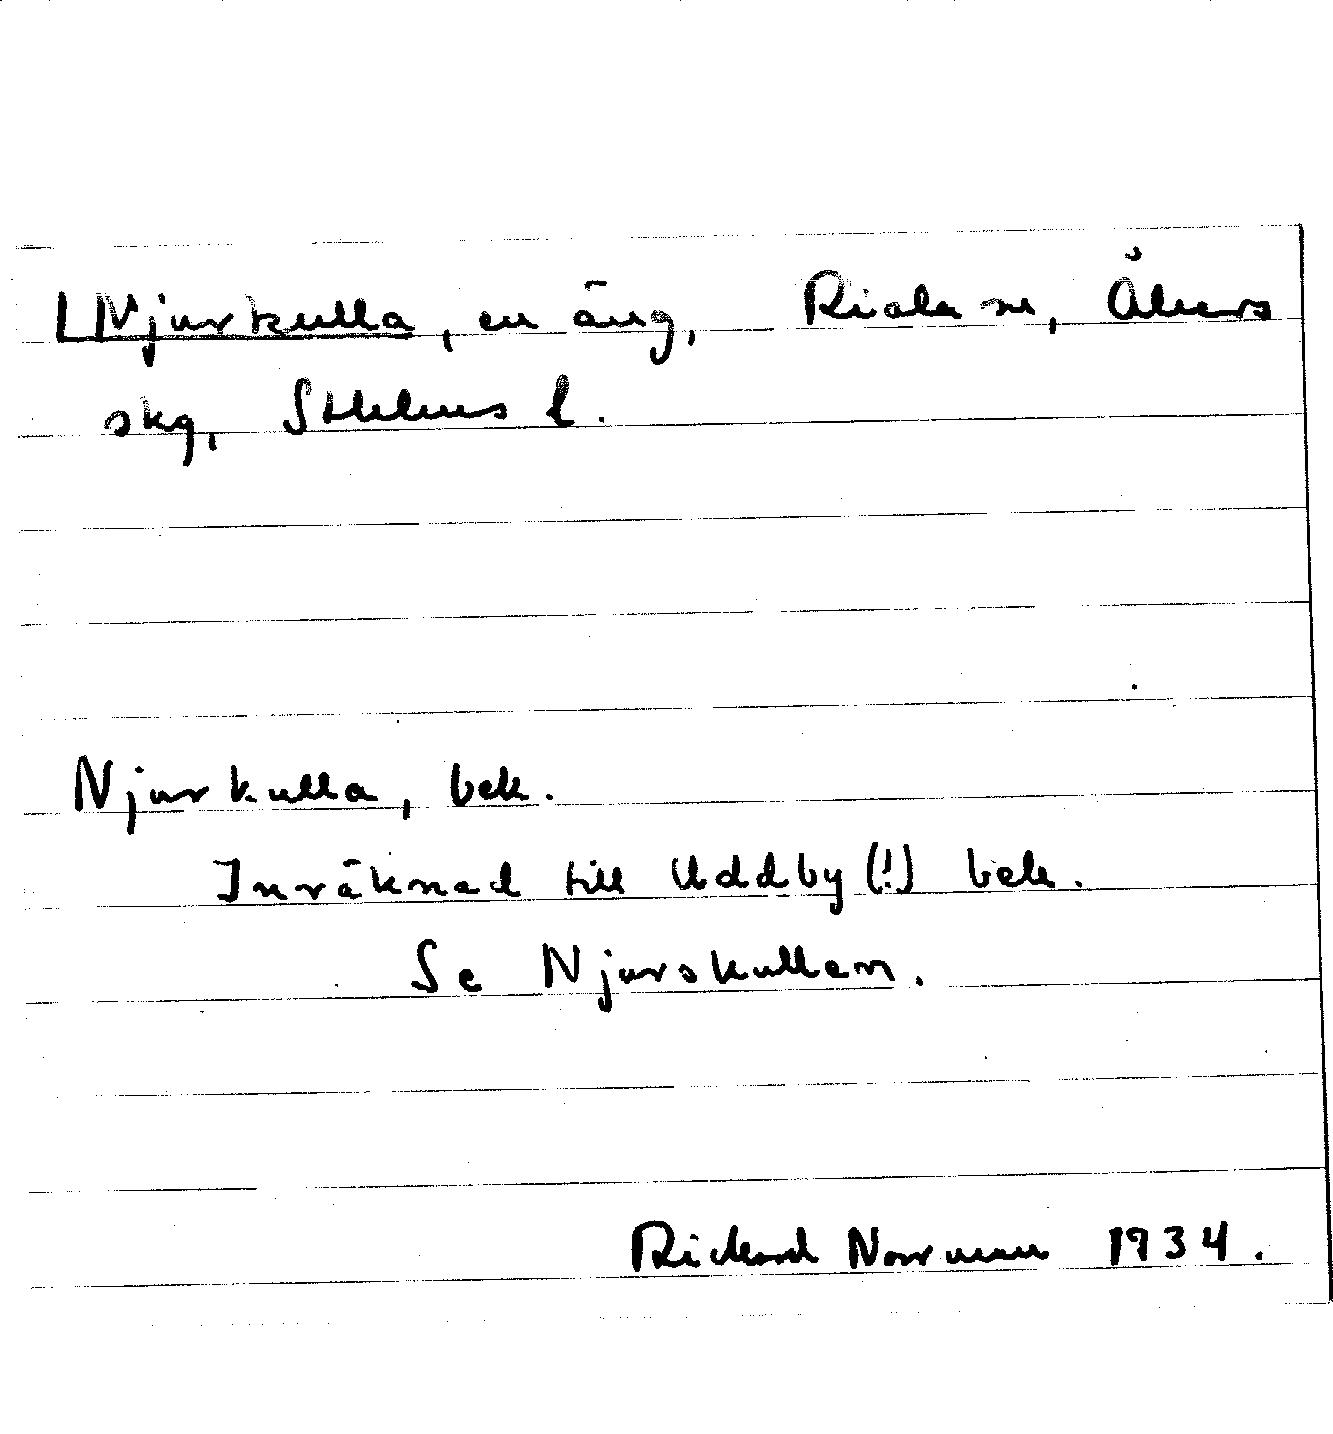 Njurkulla, en äng, Riala sn, Åkers
skg, Sthlms l.
Njurkulla, bek.
Inräknad till Uddby (!) bek.
Se Njurskullen.
Rickard Norrman 1934.